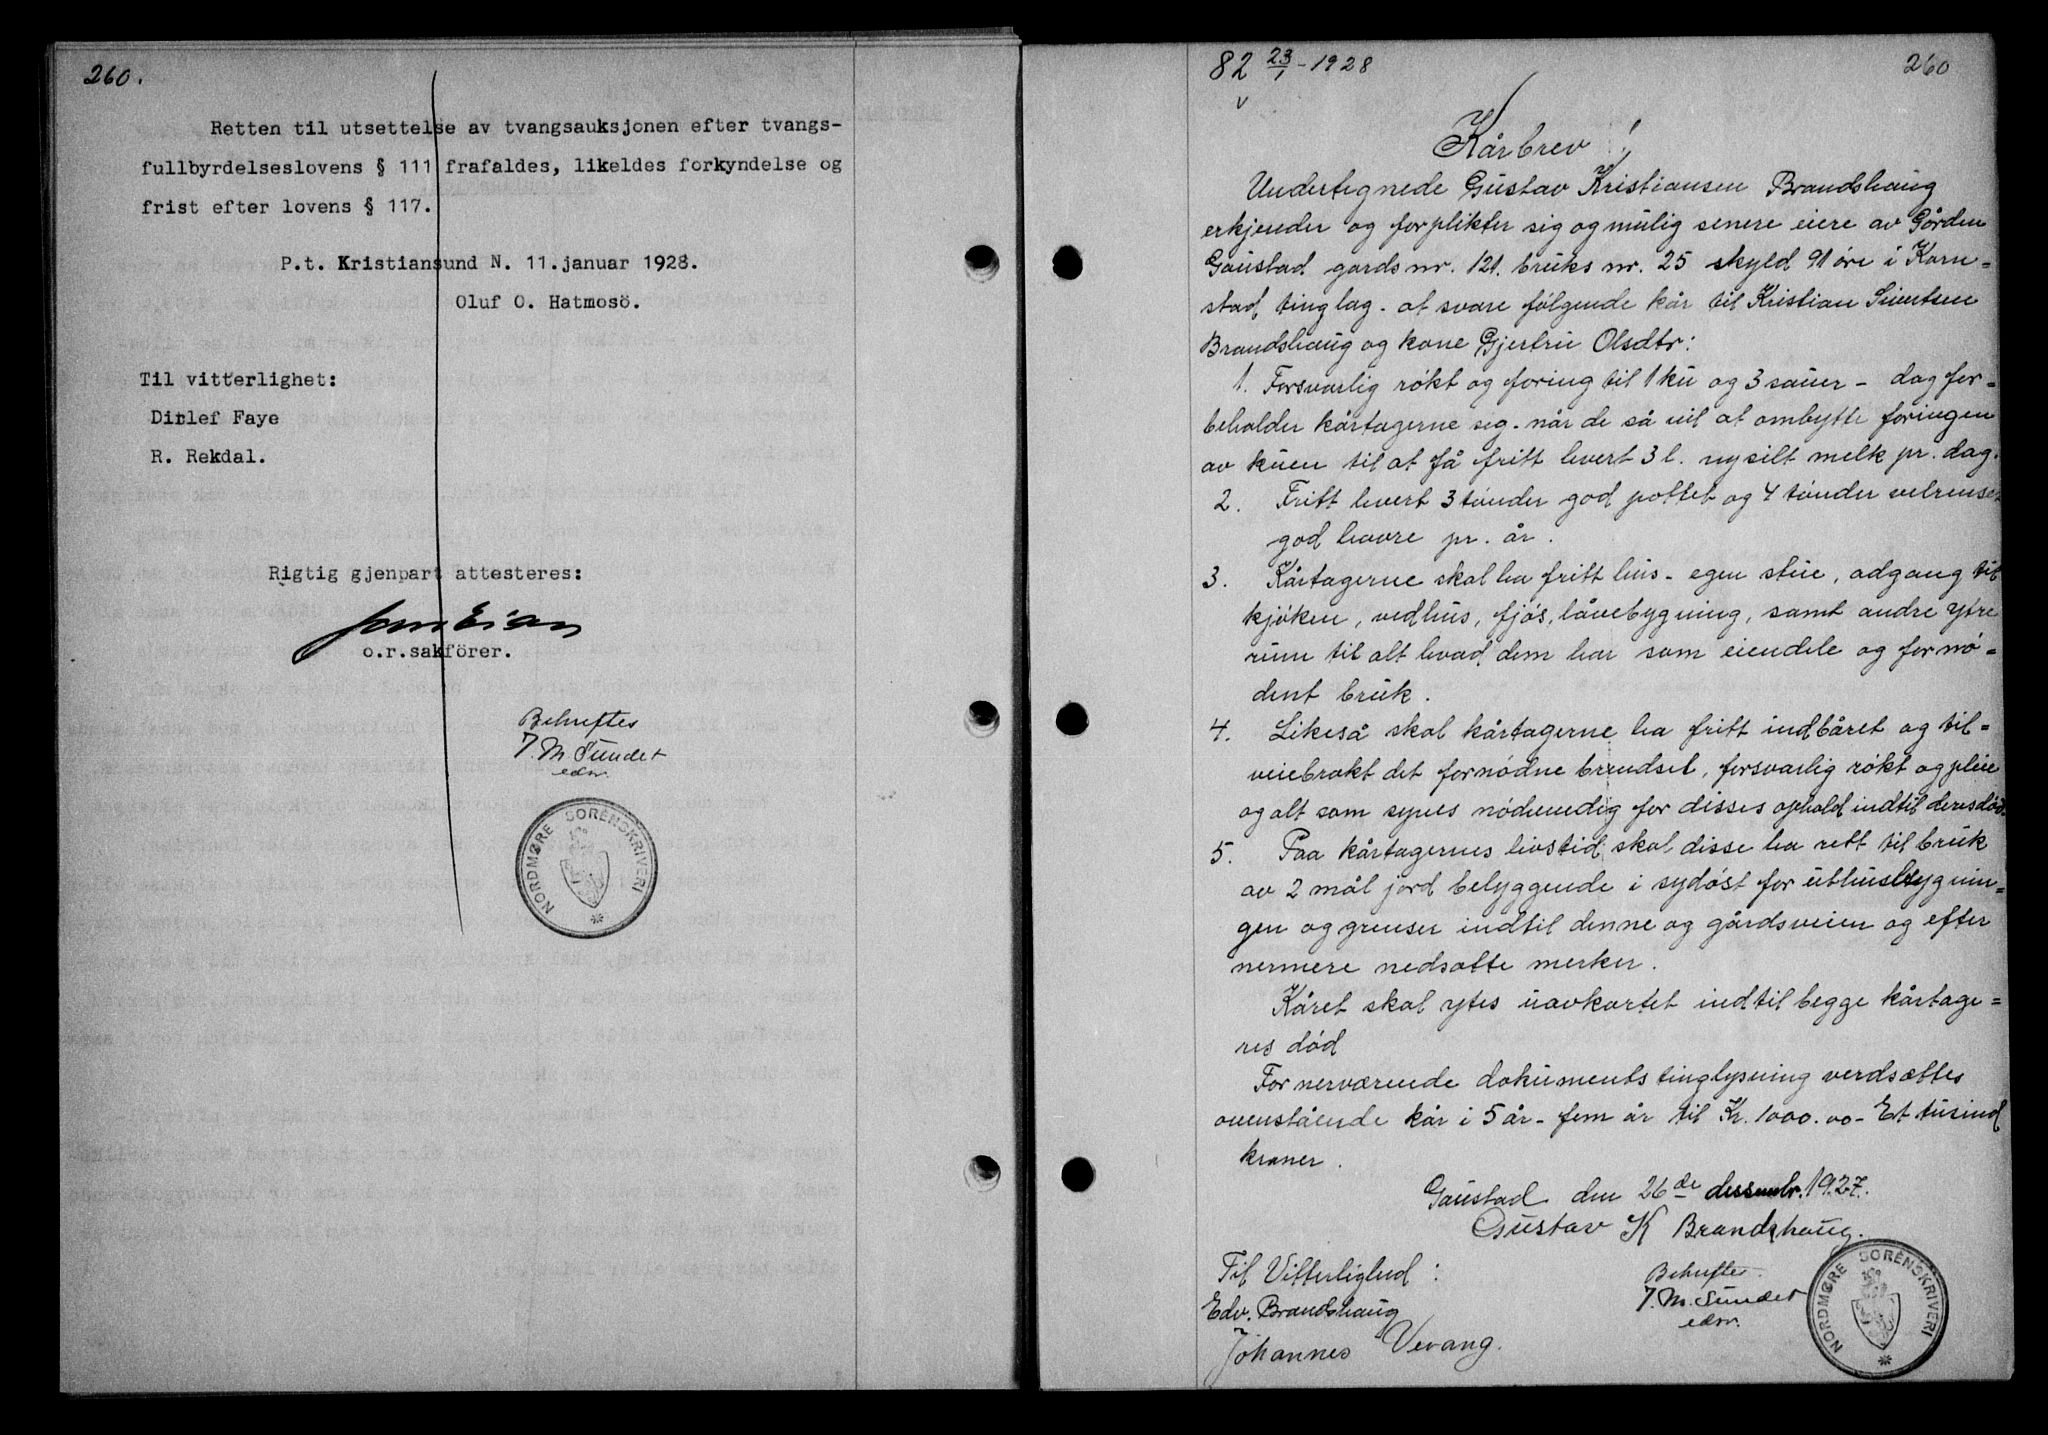 260.
Retten til utsettelse av tvangsauksjonen efter tvangs-
fullbyrdelseslovens § 111 frafaldes, likeldes forkyndelse og
frist efter lovens § 117.
P.t. Kristiansund N. 11.januar 1928.
Oluf O. Hatmosö.
Til vitterlighet:
Ditlef Faye
R. Rekdal.
Rigtig gjenpart attesteres:
o.r.sakförer.
Bekreftes
J. M. Sundet
edsv.
NORDMØRE SORENSKRIVERI
82 23/1-1928
260
Kårbrev!
Undertegnede Gustav Kristiansen Brandshaug
erkjender og forplikter sig og mulig senere eiere av Gården
Gaustad gards nr. 121. bruks nr. 25 skyld 91 øre i Korn=
stad tinglag. at svare følgende kår til Kristian Sivertsen
Brandshaug og kone Gjertru Olsdtr:
1. Forsvarlig røkt og foring til 1 ku og 3 sauer - dog for=
beholder kårtagerne sig. når de så vil at ombytte foringen
av kuen til at få fritt levert 3 l. nysilt melk pr. dag.
2. Fritt levert 3 tønder god pottet og 4 tønder velrenset
god havre pr. år.
3. Kårtagerne skal ha fritt hus - egen stue, adgang til
kjøken, vedhus, fjøs, låvebygning, samt andre ytre
rum til alt hvad dem har som eiendele og fornø=
dent bruk.
4. Likeså skal kårtagerne ha fritt indbåret og til=
veiebrakt det fornødne brendsel, forsvarlig røkt og pleie
og alt som synes nødvendig for disses ophold indtil deres død.
5. Paa kårtagernes livstid skal disse ha rett til bruk
av 2 mål jord beliggende i sydøst for uthusbygnin=
gen og grenser indtil denne og gårdsveien og efter
nermere nedsatte merker.
Kåret skal ytes uavkortet indtil begge kårtage=
res død
For nerværende dokuments tinglysning verdsættes
ovenstående kår i 5 år - fem år til Kr. 1000.00 - Et tusind
kroner.
Gaustad den 26de dessembr. 1927.
Gustav K Brandshaug.
Til Vitterlighed:
Edv. Brandshaug
Johannes Vevang.
Bekreftes
J. M. Sundet
edsv.
NORDMØRE SORENSKRIVERI